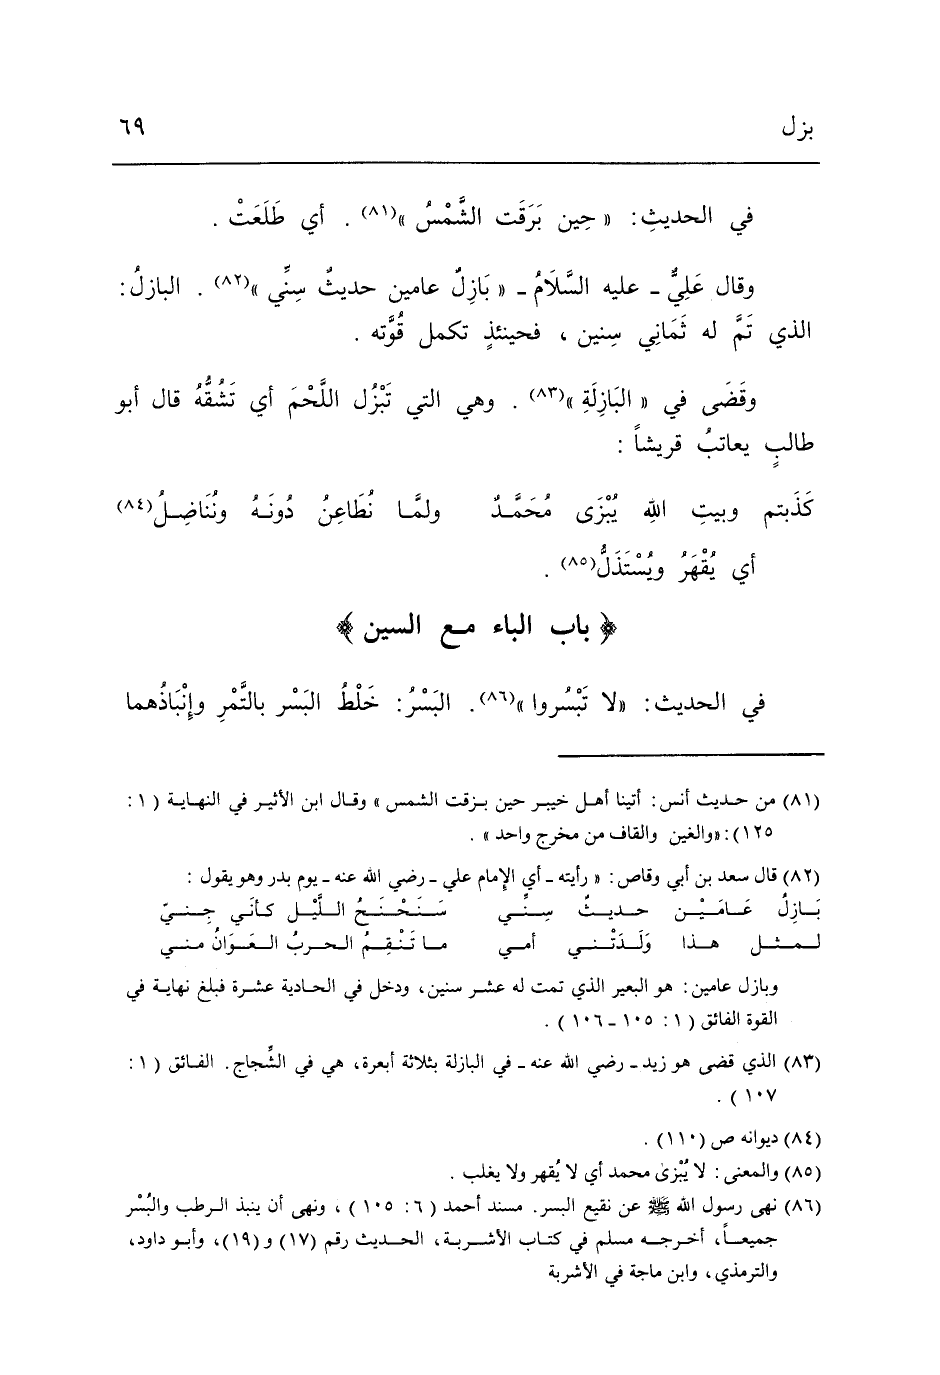 بزل ٦٩
في الحديثِ: « حِين بَرَقَت الشَّمْسُ »(٨١) . أي طَلَعَتْ .
وقال عَلِيٌّ ـ عليه السَّلَامُ ـ « بَازِلٌ عامين حديثٌ سِنِّي »(٨٢) . البازلُ:
الذي تَمَّ له ثَمَانِي سِنين ، فحينئذٍ تكمل قُوَّته .
وقَضَى في « البَازِلَةِ »(٨٣) . وهي التي تَبْزُل اللَّحْمَ أي تَشُقُّهُ قال أبو
طالبٍ يعاتبُ قريشاً :
كَذَبتم وبيتِ اللهِ يُبْزَى مُحَمَّدٌ ولمَّا نُطَاعِنُ دُونَهُ ونُنَاضِلُ(٨٤)
أي يُقْهَرُ ويُسْتَذَلُّ(٨٥) .
﴿ باب الباء مع السين ﴾
في الحديث: «لا تَبْسُروا »(٨٦). البَسْرُ: خَلْطُ البَسْر بالتَّمْرِ وإنْبَاذُهما
(٨١) من حديث أنس: أتينا أهل خيبر حين بزقت الشمس » وقال ابن الأثير في النهاية ( ١ :
١٢٥): «والغين والقاف من مخرج واحد » .
(٨٢) قال سعد بن أبي وقاص: « رأيته ـ أي الإمام علي ـ رضي الله عنه ـ يوم بدر وهو يقول :
بَازِلُ عَامَيْن حديثٌ سِنِّي سَنَحْنَحُ اللَّيْل كأنَي جِنيّ
لمثل هذا وَلَدَتْني أمي ما تَنْقِمُ الحربُ العَوَانُ مني
وبازل عامين: هو البعير الذي تمت له عشر سنين، ودخل في الحادية عشرة فبلغ نهاية في
القوة الفائق ( ١ : ١٠٥ ـ ١٠٦ ) .
(٨٣) الذي قضى هو زيد ـ رضي الله عنه ـ في البازلة بثلاثة أبعرة، هي في الشِّجاج. الفائق ( ١ :
١٠٧ ) .
(٨٤) ديوانه ص (١١٠) .
(٨٥) والمعنى: لا يُبْزىٰ محمد أي لا يُقهر ولا يغلب .
(٨٦) نهى رسول الله ﷺ عن نقيع البسر. مسند أحمد ( ٦ : ١٠٥ ) ، ونهى أن ينبذ الرطب والبُسْر
جميعاً، أخرجه مسلم في كتاب الأشربة، الحديث رقم (١٧) و(١٩)، وأبو داود،
والترمذي، وابن ماجة في الأشربة